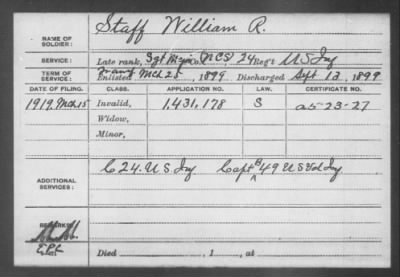 NAME OF SOLDIER: Staff William R.
SERVICE: Late rank, Sgt Maj Co. NCS, 24 Reg't U S Inf
TERM OF SERVICE: Enlisted Mch 25, 1899. Discharged Sept 13, 1899
DATE OF FILING. CLASS. APPLICATION NO. LAW. CERTIFICATE NO.
1919 Mch 15 Invalid, 1,431,178 S a5-23-27
Widow,
Minor,
ADDITIONAL SERVICES: C 24. U S Inf Capt B 49 U S Vol Inf
REMARKS:
Died , 1 , at